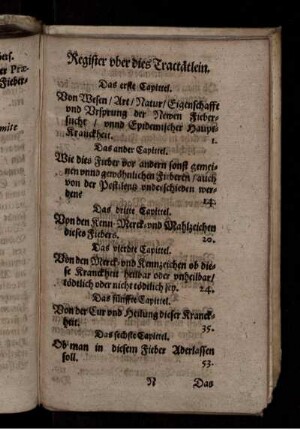 Register vber dies Tractätlein.
Das erste Capittel.
Von Wesen / Art / Natur / Eigenschafft
vnd Vrsprung der Newen Fieber-
sucht / vnnd Epidemischer Haupt-
Kranckheit. 1.
Das ander Capittel.
Wie dis Fieber vor andern sonst gemei-
nen vnnd gewöhnlichen Fieberen / auch
von der Pestilentz vnderschieden wer-
denn 14.
Das dritte Capittel.
Von den Kenn- Merck- vnd Mahlzeichen
dieses Fiebers. 20.
Das vierdte Capittel.
Von den Merck- vnd Kennzeichen ob die-
se Kranckheit heilbar oder vnheilbar /
tödtlich oder nicht tödtlich sey. 24.
Das fünffte Capittel.
Von der Cur vnd Heilung dieser Kranck-
heit. 35.
Das sechste Capittel.
Ob man in diesem Fieber Aderlassen
soll. 53.
N Das